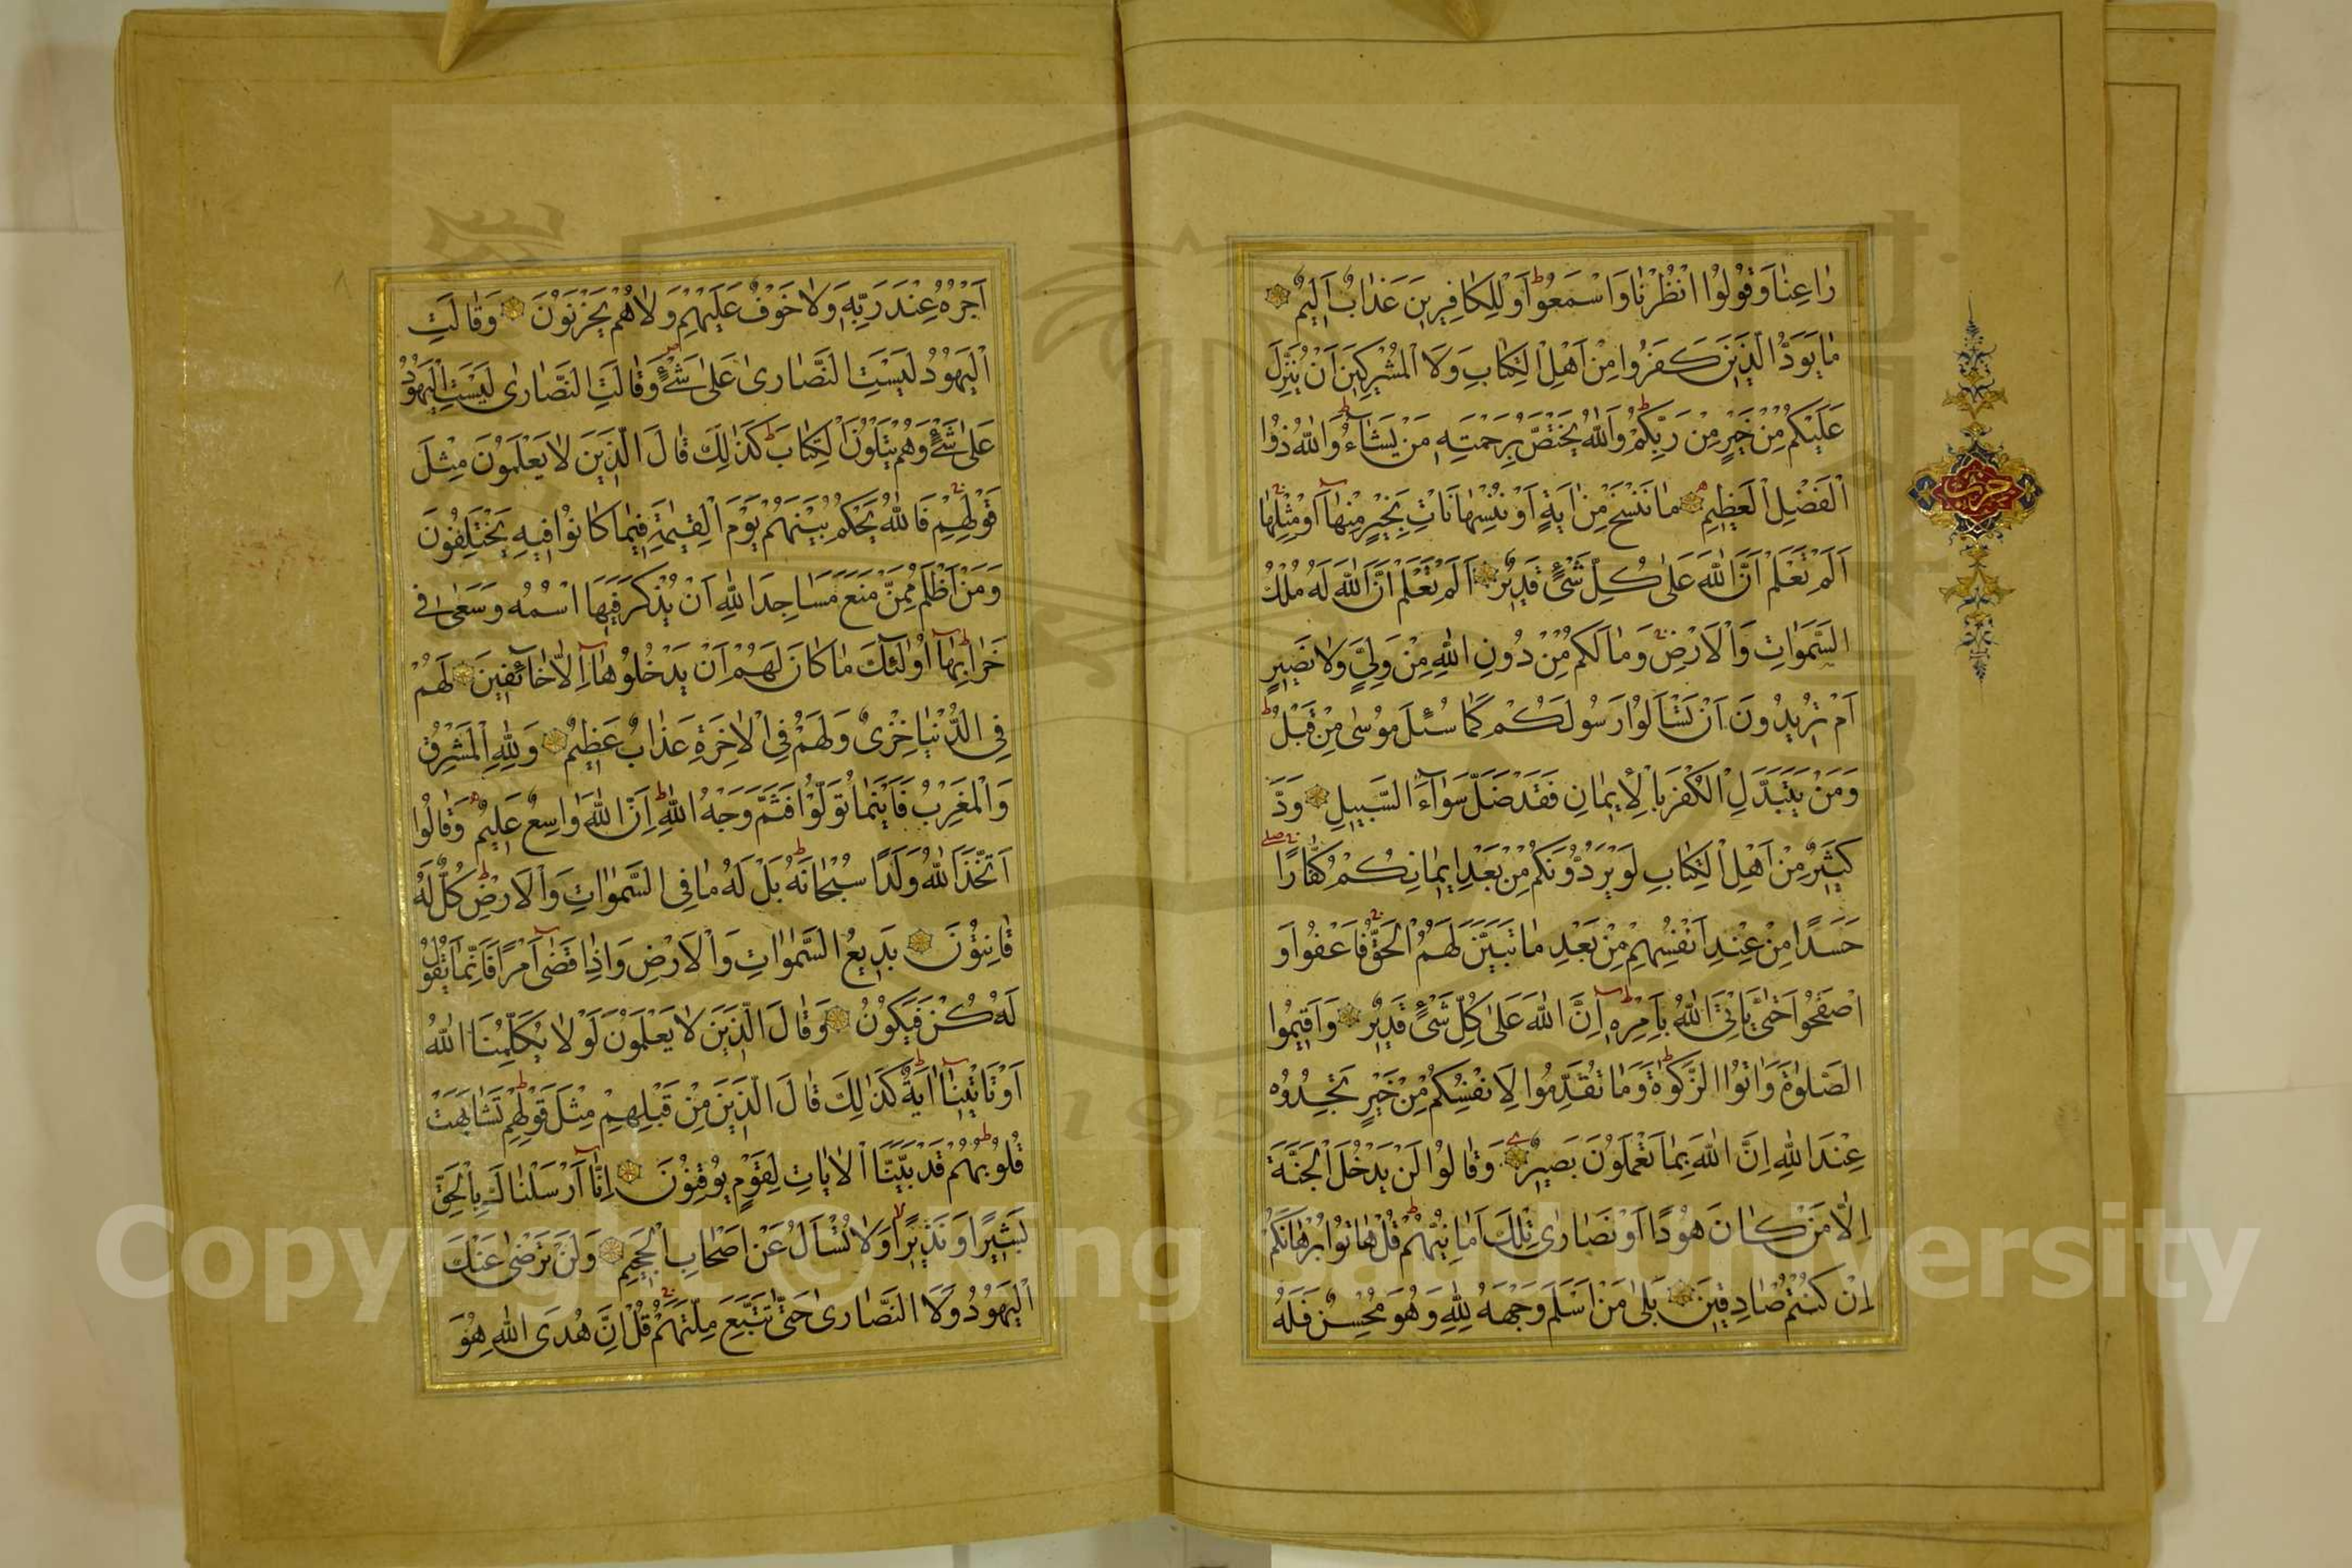 رَاعِنَا وَقُولُوا انْظُرْنَا وَاسْمَعُوا وَلِلْكَافِرِينَ عَذَابٌ اَلِيمٌ
مَا يَوَدُّ الَّذِينَ كَفَرُوا مِنْ اَهْلِ الْكِتَابِ وَلَا الْمُشْرِكِينَ اَنْ يُنَزَّلَ
عَلَيْكُمْ مِنْ خَيْرٍ مِنْ رَبِّكُمْ وَاللّٰهُ يَخْتَصُّ بِرَحْمَتِهِ مَنْ يَشَاءُ وَاللّٰهُ ذُوا
الْفَضْلِ الْعَظِيمِ مَا نَنْسَخْ مِنْ اٰيَةٍ اَوْ نُنْسِهَا نَاْتِ بِخَيْرٍ مِنْهَا اَوْ مِثْلِهَا
اَلَمْ تَعْلَمْ اَنَّ اللّٰهَ عَلٰى كُلِّ شَيْءٍ قَدِيرٌ اَلَمْ تَعْلَمْ اَنَّ اللّٰهَ لَهُ مُلْكُ
السَّمٰوَاتِ وَالْاَرْضِ وَمَا لَكُمْ مِنْ دُونِ اللّٰهِ مِنْ وَلِيٍّ وَلَا نَصِيرٍ
اَمْ تُرِيدُونَ اَنْ تَسْاَلُوا رَسُولَكُمْ كَمَا سُئِلَ مُوسٰى مِنْ قَبْلُ
وَمَنْ يَتَبَدَّلِ الْكُفْرَ بِالْاِيمَانِ فَقَدْ ضَلَّ سَوَاءَ السَّبِيلِ وَدَّ
كَثِيرٌ مِنْ اَهْلِ الْكِتَابِ لَوْ يَرُدُّونَكُمْ مِنْ بَعْدِ اِيمَانِكُمْ كُفَّارًا
حَسَدًا مِنْ عِنْدِ اَنْفُسِهِمْ مِنْ بَعْدِ مَا تَبَيَّنَ لَهُمُ الْحَقُّ فَاعْفُوا وَ
اصْفَحُوا حَتّٰى يَاْتِيَ اللّٰهُ بِاَمْرِهِ اِنَّ اللّٰهَ عَلٰى كُلِّ شَيْءٍ قَدِيرٌ وَاَقِيمُوا
الصَّلٰوةَ وَاٰتُوا الزَّكٰوةَ وَمَا تُقَدِّمُوا لِاَنْفُسِكُمْ مِنْ خَيْرٍ تَجِدُوهُ
عِنْدَ اللّٰهِ اِنَّ اللّٰهَ بِمَا تَعْمَلُونَ بَصِيرٌ وَقَالُوا لَنْ يَدْخُلَ الْجَنَّةَ
اِلَّا مَنْ كَانَ هُودًا اَوْ نَصَارٰى تِلْكَ اَمَانِيُّهُمْ قُلْ هَاتُوا بُرْهَانَكُمْ
اِنْ كُنْتُمْ صَادِقِينَ بَلٰى مَنْ اَسْلَمَ وَجْهَهُ لِلّٰهِ وَهُوَ مُحْسِنٌ فَلَهُ
حزب
اَجْرُهُ عِنْدَ رَبِّهِ وَلَا خَوْفٌ عَلَيْهِمْ وَلَا هُمْ يَحْزَنُونَ وَقَالَتِ
الْيَهُودُ لَيْسَتِ النَّصَارٰى عَلٰى شَيْءٍ وَقَالَتِ النَّصَارٰى لَيْسَتِ الْيَهُودُ
عَلٰى شَيْءٍ وَهُمْ يَتْلُونَ الْكِتَابَ كَذٰلِكَ قَالَ الَّذِينَ لَا يَعْلَمُونَ مِثْلَ
قَوْلِهِمْ فَاللّٰهُ يَحْكُمُ بَيْنَهُمْ يَوْمَ الْقِيٰمَةِ فِيمَا كَانُوا فِيهِ يَخْتَلِفُونَ
وَمَنْ اَظْلَمُ مِمَّنْ مَنَعَ مَسَاجِدَ اللّٰهِ اَنْ يُذْكَرَ فِيهَا اسْمُهُ وَسَعٰى فِى
خَرَابِهَا اُولٰئِكَ مَا كَانَ لَهُمْ اَنْ يَدْخُلُوهَا اِلَّا خَائِفِينَ لَهُمْ
فِي الدُّنْيَا خِزْىٌ وَلَهُمْ فِي الْاٰخِرَةِ عَذَابٌ عَظِيمٌ وَلِلّٰهِ الْمَشْرِقُ
وَالْمَغْرِبُ فَاَيْنَمَا تُوَلُّوا فَثَمَّ وَجْهُ اللّٰهِ اِنَّ اللّٰهَ وَاسِعٌ عَلِيمٌ وَقَالُوا
اتَّخَذَ اللّٰهُ وَلَدًا سُبْحَانَهُ بَلْ لَهُ مَا فِي السَّمٰوَاتِ وَالْاَرْضِ كُلٌّ لَهُ
قَانِتُونَ بَدِيعُ السَّمٰوَاتِ وَالْاَرْضِ وَاِذَا قَضٰى اَمْرًا فَاِنَّمَا يَقُولُ
لَهُ كُنْ فَيَكُونُ وَقَالَ الَّذِينَ لَا يَعْلَمُونَ لَوْلَا يُكَلِّمُنَا اللّٰهُ
اَوْ تَاْتِينَا اٰيَةٌ كَذٰلِكَ قَالَ الَّذِينَ مِنْ قَبْلِهِمْ مِثْلَ قَوْلِهِمْ تَشَابَهَتْ
قُلُوبُهُمْ قَدْ بَيَّنَّا الْاٰيَاتِ لِقَوْمٍ يُوقِنُونَ اِنَّا اَرْسَلْنَاكَ بِالْحَقِّ
بَشِيرًا وَنَذِيرًا وَلَا تُسْاَلُ عَنْ اَصْحَابِ الْجَحِيمِ وَلَنْ تَرْضٰى عَنْكَ
الْيَهُودُ وَلَا النَّصَارٰى حَتّٰى تَتَّبِعَ مِلَّتَهُمْ قُلْ اِنَّ هُدَى اللّٰهِ هُوَ
Copyright © King Saud University
195